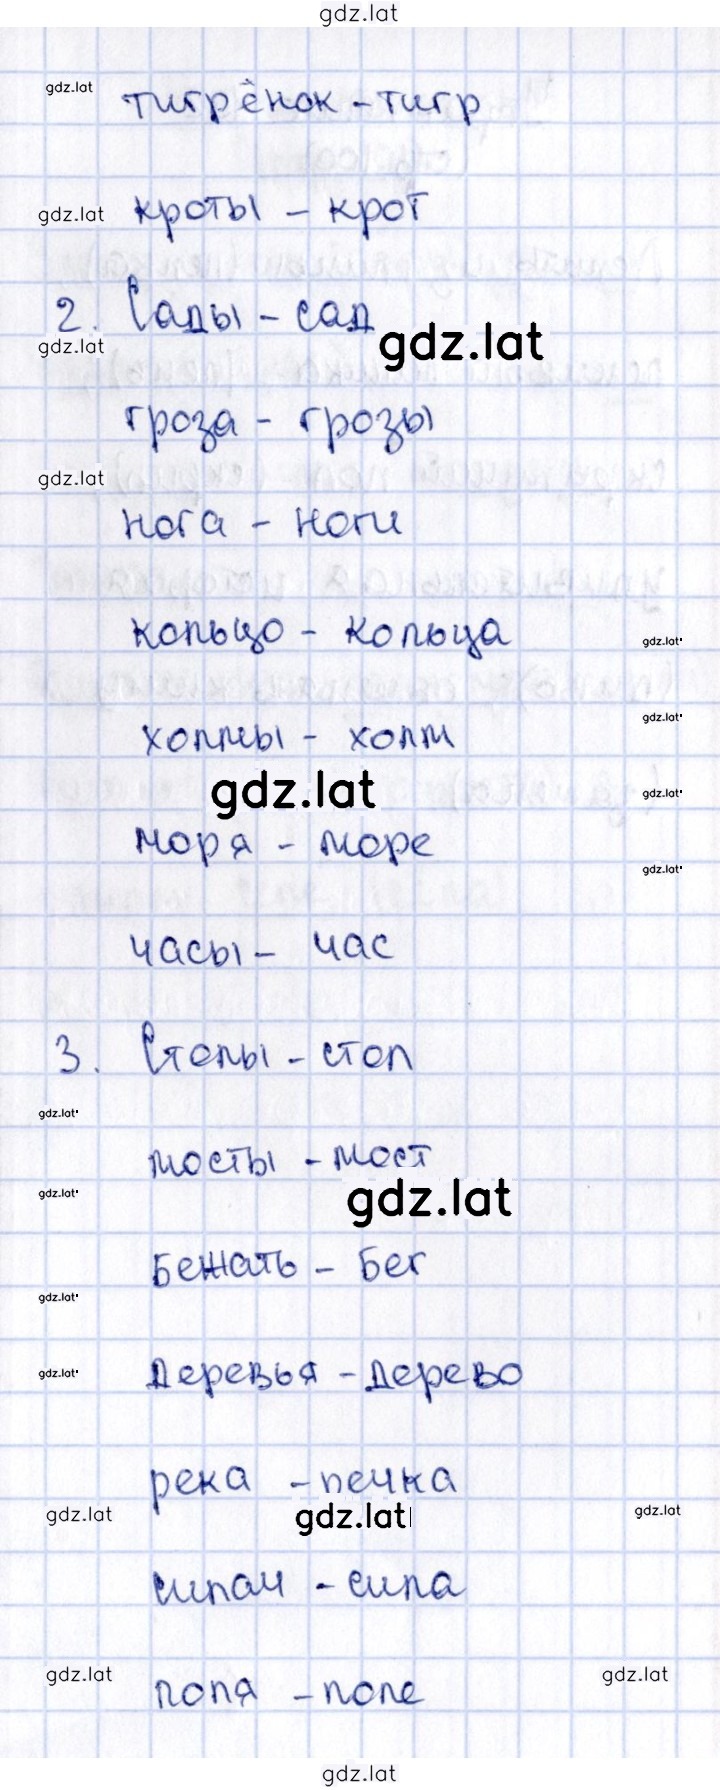 gdz.lat
gdz.lat
тигрёнок - тигр
gdz.lat
кроты - крот
2. Сады - сад
gdz.lat
gdz.lat
гроза - грозы
gdz.lat
нога - ноги
кольцо - кольца
gdz.lat
gdz.lat
холмы - холм
gdz.lat
gdz.lat
моря - море
gdz.lat
часы - час
3. Столы - стол
gdz.lat
мосты - мост
gdz.lat
gdz.lat
бежать - бег
gdz.lat
gdz.lat
деревья - дерево
река - печка
gdz.lat
gdz.lat
gdz.lat
силач - сила
gdz.lat
gdz.lat
поля - поле
gdz.lat